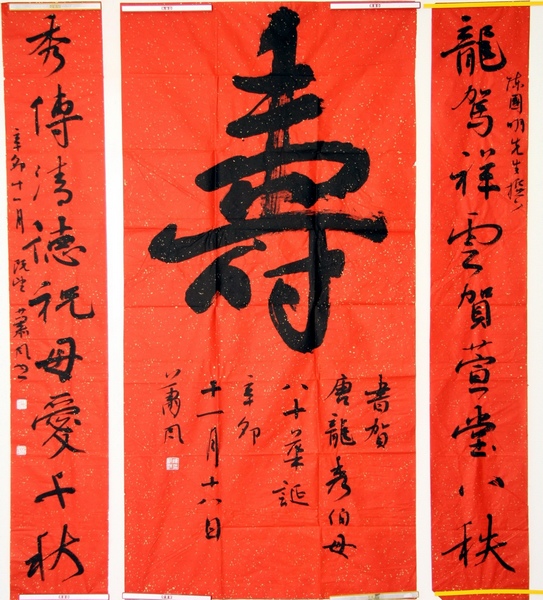 龍駕祥雲賀萱堂八秩
陳國明先生撰句
壽
書賀
唐龍秀伯母
八十華誕
辛卯
十一月十八日
蕭風
秀傳清德祝母愛千秋
辛卯十一月
蕭風書